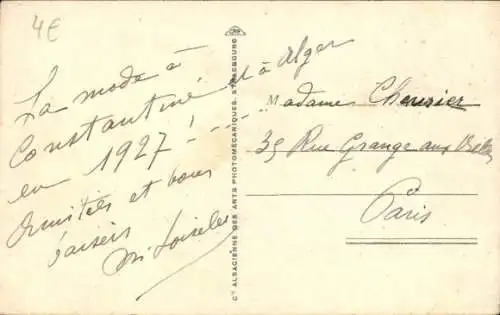 4€
La mode à
Constantine et à Alger
en 1927 ! ....
Amitiés et bons
baisers
M. Loiselee
Madame Cheurier
35 Rue Grange aux Belles
Paris
Cie ALSACIENNE DES ARTS PHOTOMÉCANIQUES, STRASBOURG